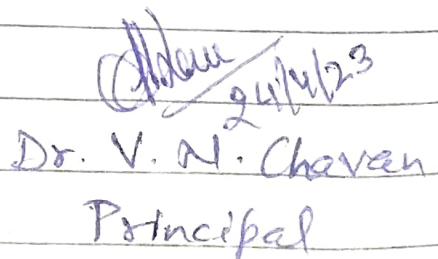 24/4/23
Dr. V. N. Chavan
Principal